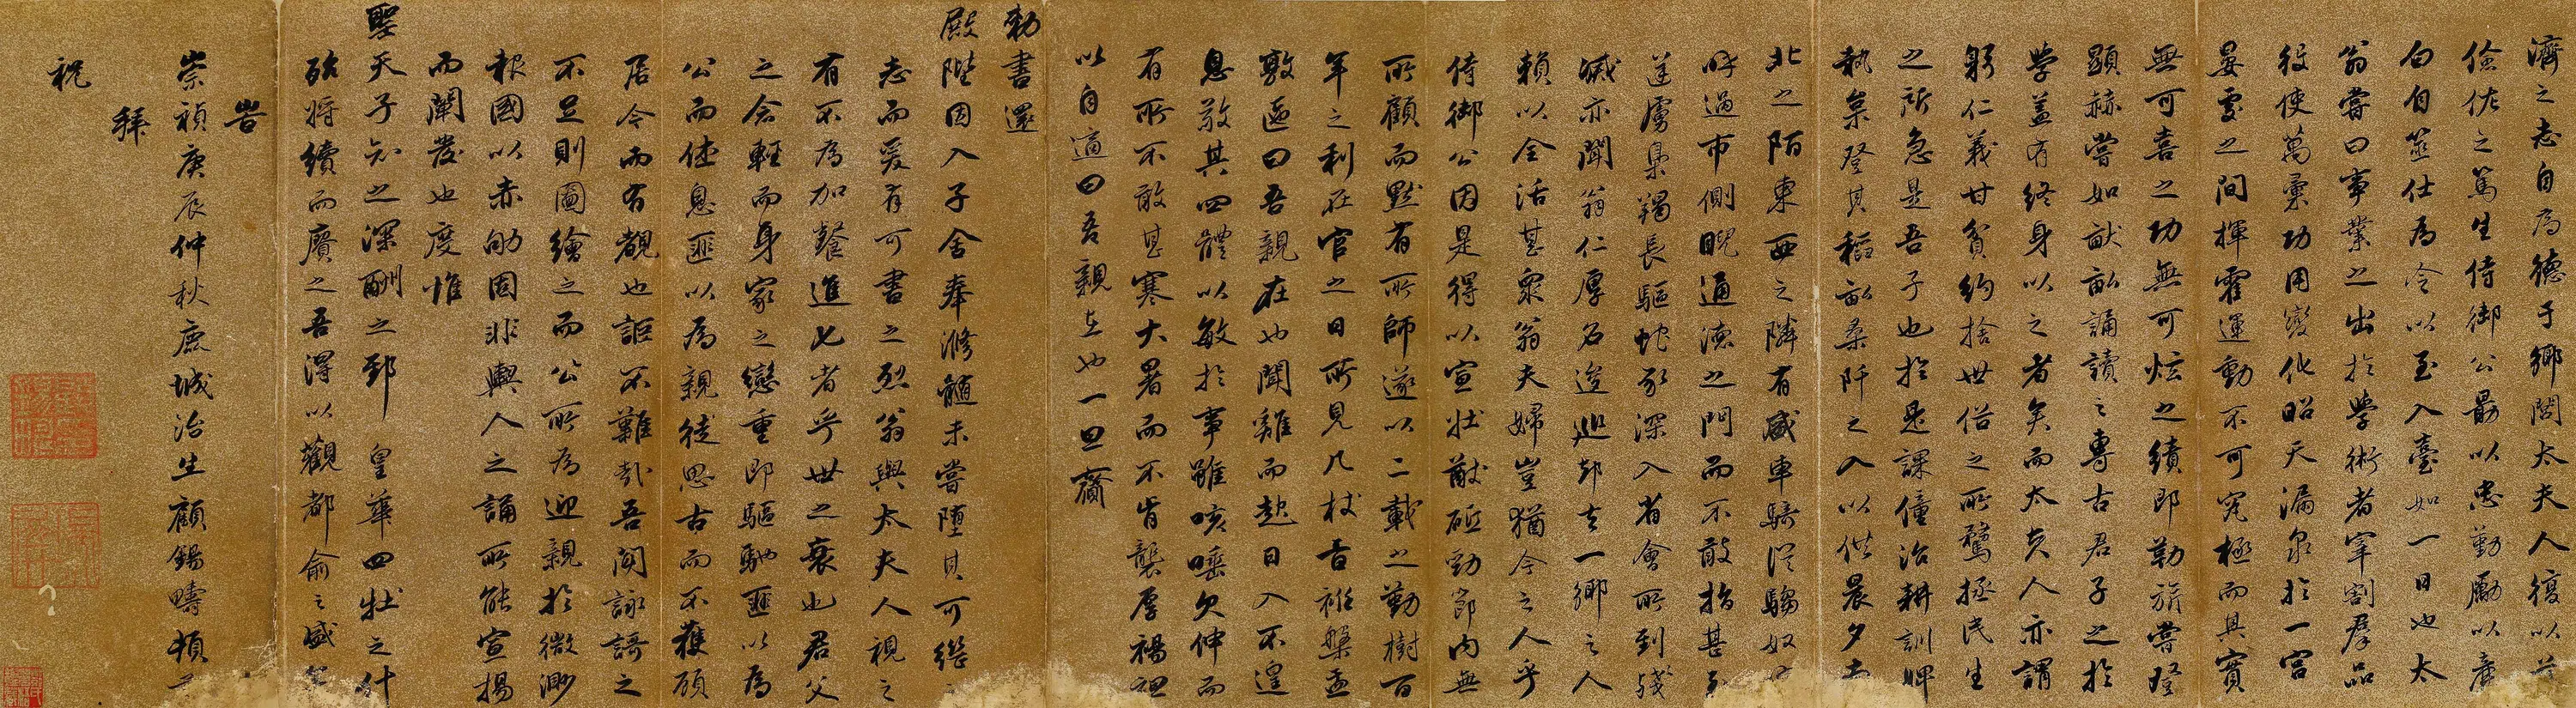 濟之志自為德于鄉閭太夫人復以
儉佐之篤生侍御公勗以忠勤勵以廉
白自筮仕為令以至入臺如一日也太
翁嘗曰事業之出於學術者宰割群品
役使萬彙功用變化昭天漏泉於一宮
晏處之間揮霍運動不可究極而其實
無可喜之功無可炫之績即勒旂嘗登
顯赫嘗如畎畝誦讀之專古君子之於
學蓋有終身以之者矣而太夫人亦謂
躬仁義甘貧約捨世俗之所騖拯民生
之所急是吾子也於是課僮治耕訓婢
執枲登其稻畝桑阡之入以供晨夕
北之陌東西之隣有盛車騎從騶奴
呼過市側睨通德之門而不敢指甚
逆虜梟獨長驅蛇豕深入省會所到殘
滅亦聞翁仁厚名逡廵却去一鄉之人
賴以全活甚衆翁夫婦豈猶今之人乎
侍御公因是得以宣壯猷砥勁節內無
所顧而默有所師遂以二載之勤樹百
年之利在官之日所見几杖言祗槃盂
敦匜曰吾親在也聞雞而起日入不遑
息敬其四體以敏於事雖咳唾欠伸而
有所不敢甚寒大暑而不肯襲厚裼袒
以自適曰吾親在也一旦齎
勅書還
殿陛因入子舍奉滫髓未嘗墮其可繼
志而爰有可書之烈翁與太夫人視之
有不為加餐進匕者乎世之衰也君父
之念輕而身家之戀重即驅馳匪以為
公而休息匪以為親徒思古而不獲顧
居今而有覩也詎不難哉吾聞詠謌之
不足則圖繪之而公所為迎親於微渺
報國以赤
固非輿人之誦所能宣揚
而闡發也度惟
聖天子知之深酬之郅 皇華四牡之什
殆將續而賡之吾得以觀都俞之盛
旹
崇禎庚辰仲秋鹿城治生顧錫疇頓
拜
祝